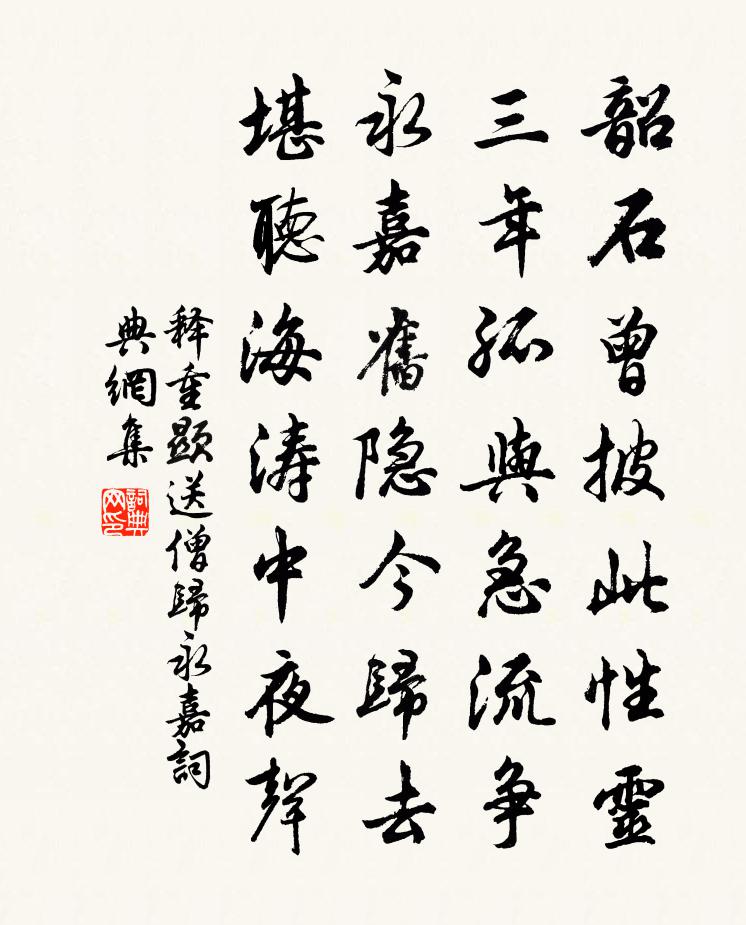 韶石曾披此性靈
三年孤與急流争
永嘉舊隐今歸去
堪聽海涛中夜聲
释重顯送僧歸永嘉詞
典網集
詞典网印